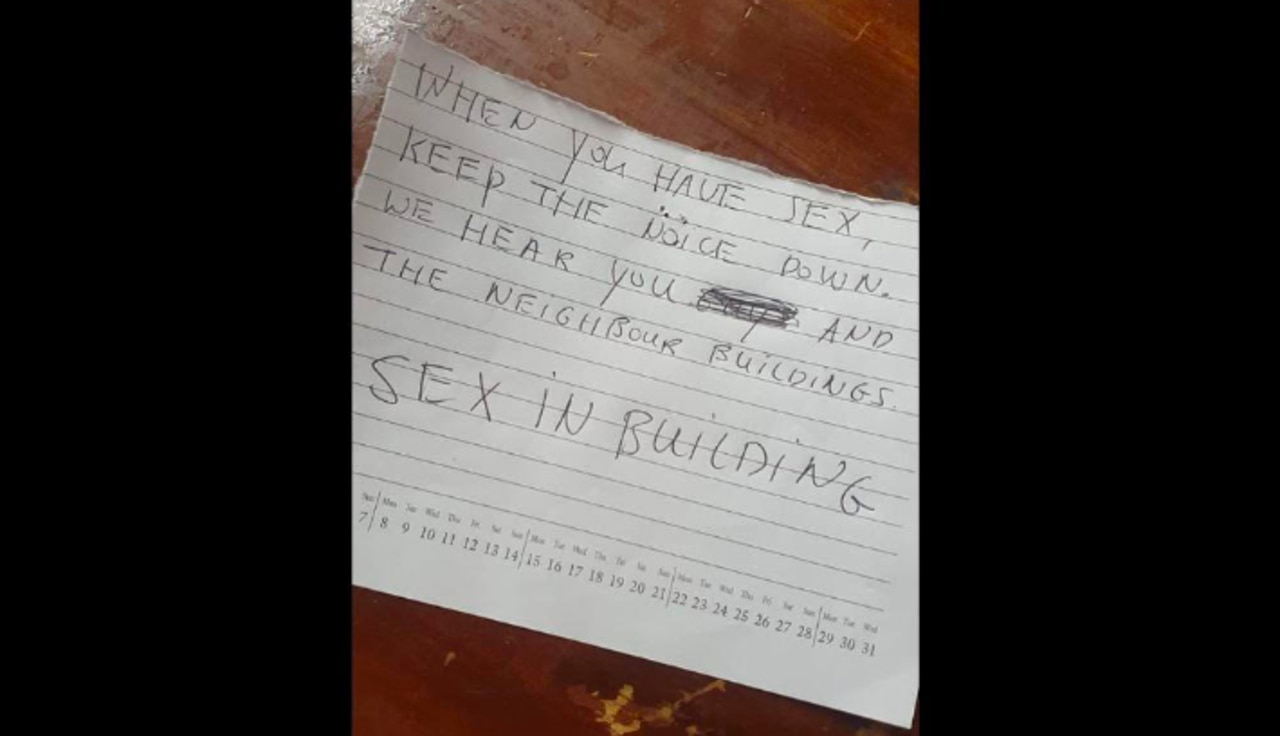 WHEN YOU HAVE SEX,
KEEP THE NÖICE DOWN.
WE HEAR YOU AND
THE NEIGHBOUR BUILDINGS.
SEX IN BUILDING
Sun Mon Tue Wed Thu Fri Sat Sun Mon Tue Wed Thu Fri Sat Sun Mon Tue Wed Thu Fri Sat Sun Mon Tue Wed
7 8 9 10 11 12 13 14 15 16 17 18 19 20 21 22 23 24 25 26 27 28 29 30 31